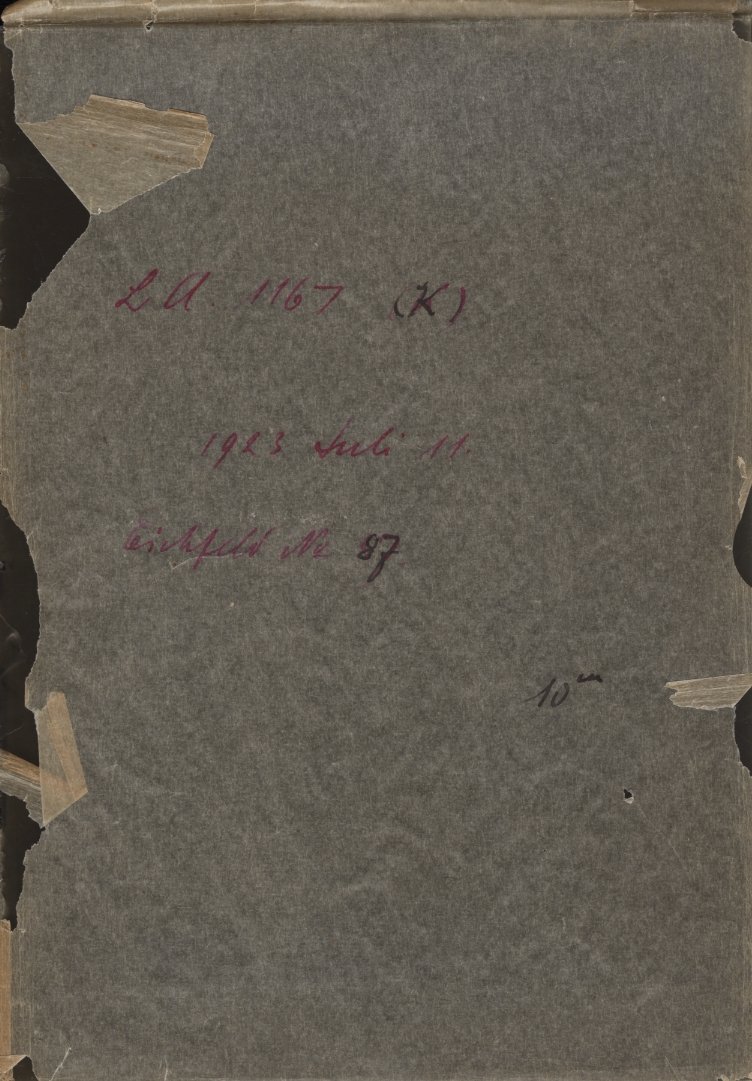 L A. 1167 (K)
1923 Juli 11.
Eichfeld Nr 87
10ᵐ